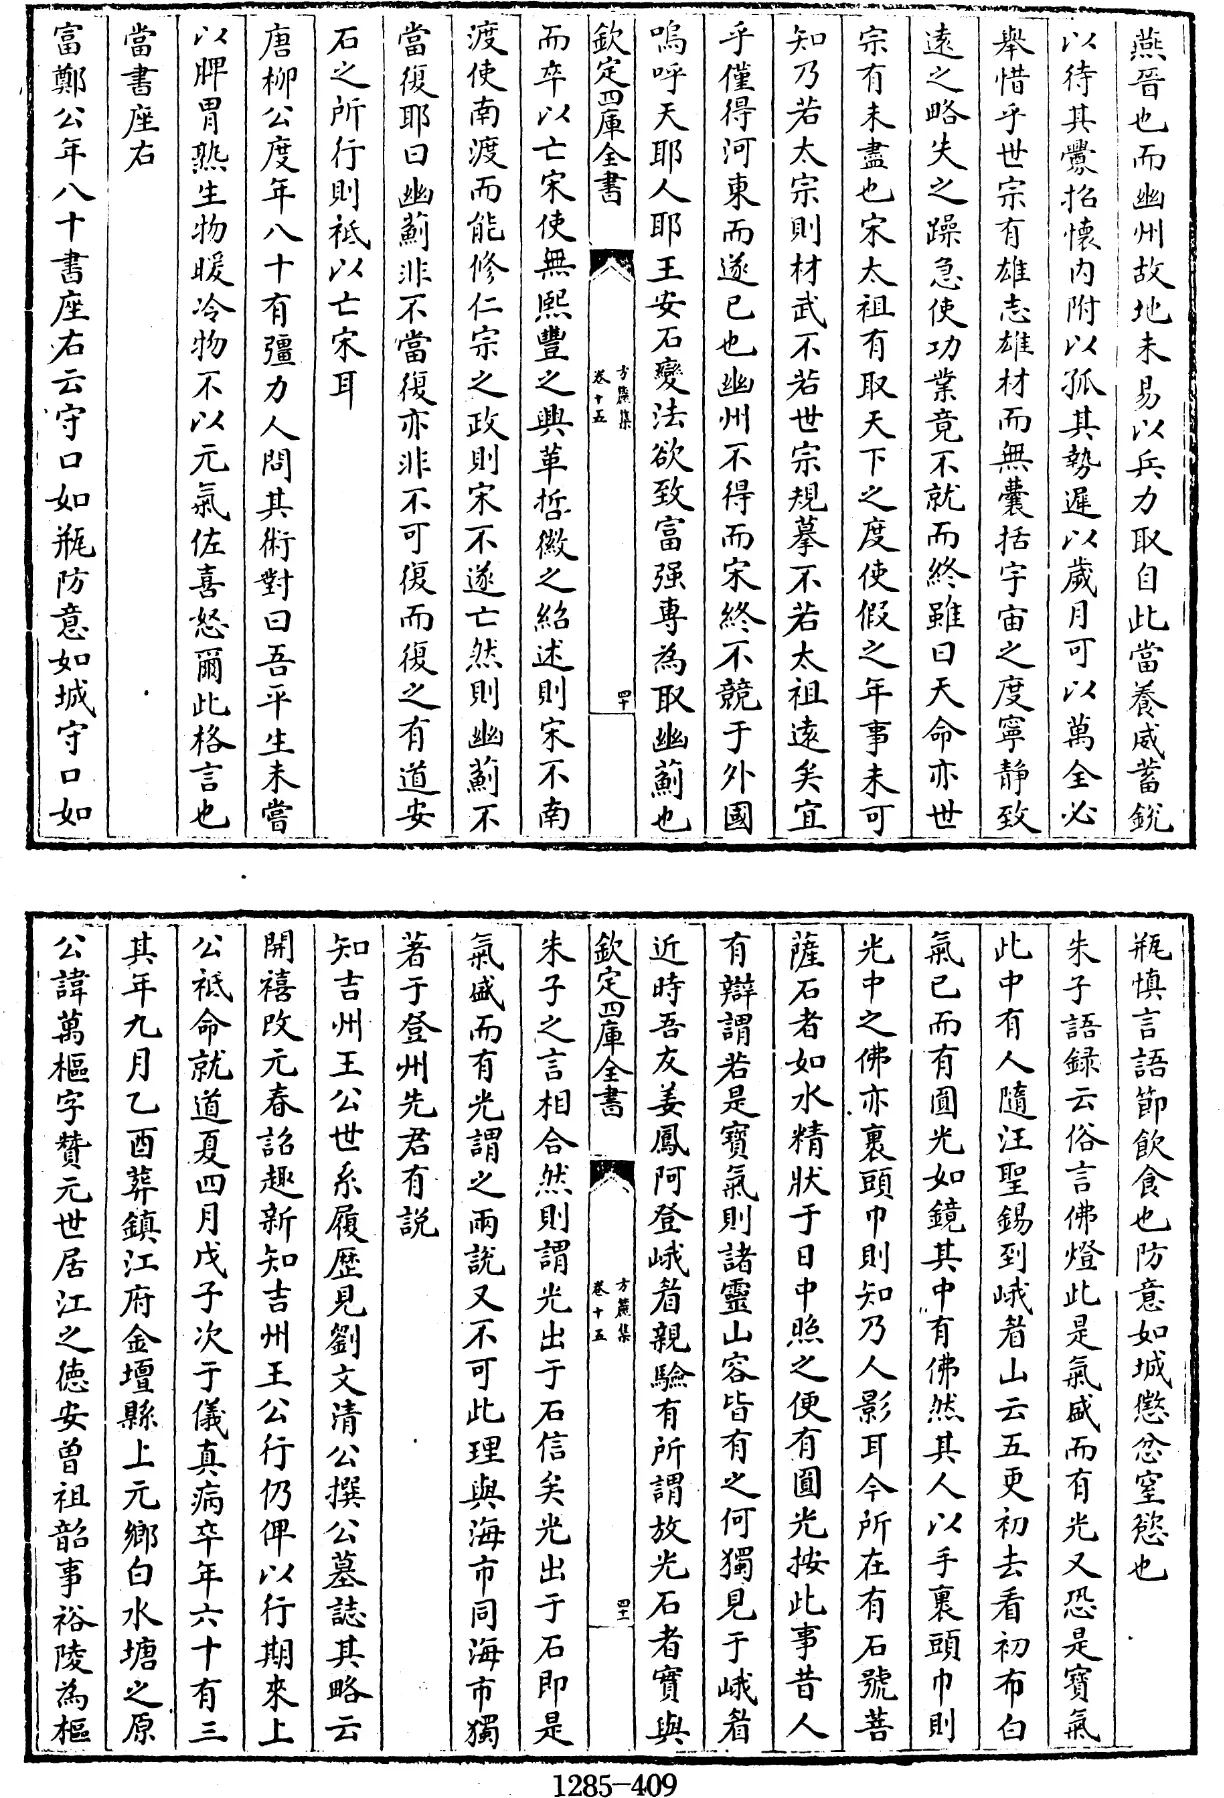 燕晉也而幽州故地未易以兵力取自此當養威蓄銳
以待其釁招懷内附以孤其勢遲以歲月可以萬全必
舉惜乎世宗有雄志雄材而無囊括宇宙之度寧静致
逺之略失之躁急使功業竟不就而終雖曰天命亦世
宗有未盡也宋太祖有取天下之度使假之年事未可
知乃若太宗則材武不若世宗規摹不若太祖逺矣宜
乎僅得河東而遂已也幽州不得而宋終不競于外國
嗚呼天耶人耶王安石變法欲致富强專為取幽薊也
欽定四庫全書
方麓集
卷十五
四十
而卒以亡宋使無熙豐之興革哲徽之紹述則宋不南
渡使南渡而能修仁宗之政則宋不遂亡然則幽薊不
當復耶曰幽薊非不當復亦非不可復而復之有道安
石之所行則祗以亡宋耳
唐栁公度年八十有彊力人問其術對曰吾平生未嘗
以脾胃熟生物暖冷物不以元氣佐喜怒爾此格言也
當書座右
富鄭公年八十書座右云守口如瓶防意如城守口如
瓶慎言語節飲食也防意如城懲忿窒慾也
朱子語録云俗言佛燈此是氣盛而有光又恐是寳氣
此中有人隨汪聖錫到峨眉山云五更初去看初布白
氣已而有圓光如鏡其中有佛然其人以手裹頭巾則
光中之佛亦裹頭巾則知乃人影耳今所在有石號菩
薩石者如水精狀于日中照之便有圓光按此事昔人
有辯謂若是寳氣則諸靈山容皆有之何獨見于峨眉
近時吾友姜鳳阿登峨眉親驗有所謂放光石者實與
欽定四庫全書
方麓集
卷十五
四十一
朱子之言相合然則謂光出于石信矣光出于石即是
氣盛而有光謂之兩說又不可此理與海市同海市獨
著于登州先君有說
知吉州王公世系履歴見劉文清公撰公墓誌其略云
開禧改元春詔趣新知吉州王公行仍俾以行期來上
公祗命就道夏四月戊子次于儀真病卒年六十有三
其年九月乙酉葬鎮江府金壇縣上元鄉白水塘之原
公諱萬樞字贊元世居江之徳安曾祖韶事裕陵為樞
1285-409